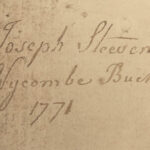 Joseph Steeven
Wycombe Buck
1771